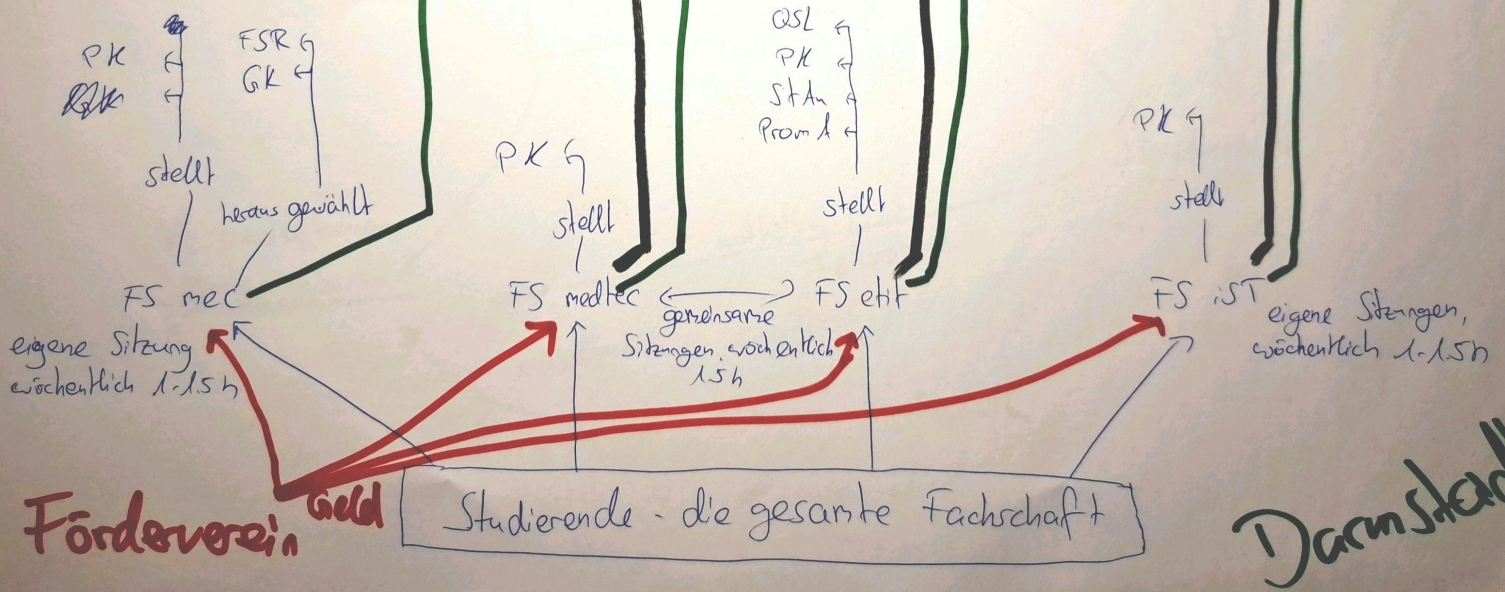 PK
FSR
GK
stellt
heraus gewählt
FS mec
eigene Sitzung
wöchentlich 1-1.5h
PK
stellt
FS medtec
gemeinsame
Sitzungen, wöchentlich
1.5h
QSL
PK
StAu
Prom A
stellt
FS etit
PK
stellt
FS iST
eigene Sitzungen,
wöchentlich 1-1.5h
Förderverein
Geld
Studierende - die gesamte Fachschaft
Darmstadt